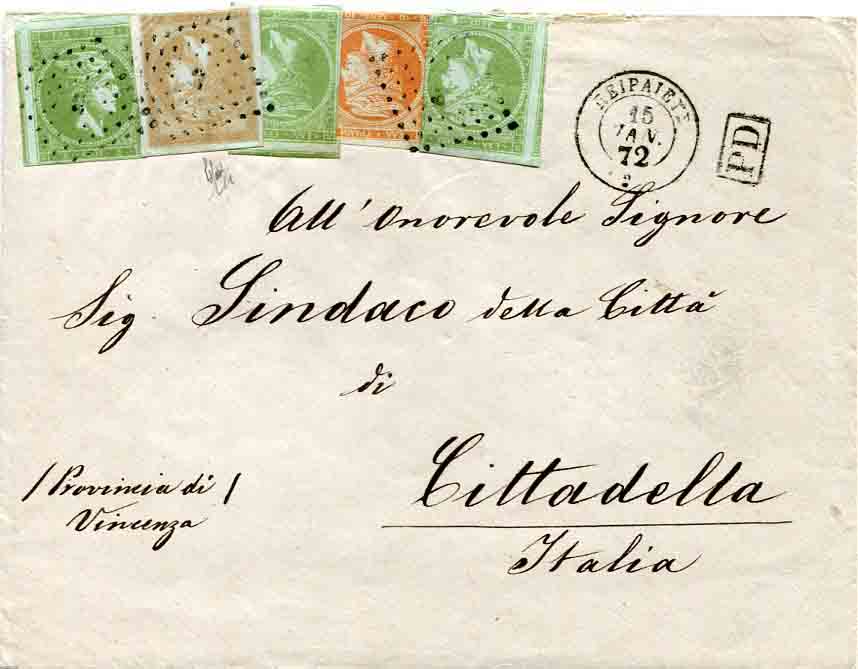 ΠΕΙΡΑΙΕΥΣ
15
ΙΑΝ.
72
PD
All' Onorevole Signore
Sig. Sindaco della Città
di
Cittadella
Italia
/ Provincia di /
Vincenza